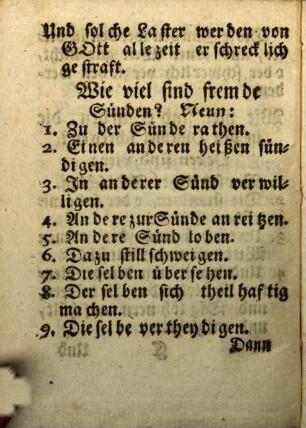 Und sol che La ster wer den von
GOtt al le zeit er schreck lich
ge straft.
Wie viel sind frem de
Sünden? Neun:
1. Zu der Sünde ra then.
2. Ei nen an de ren heißen sün-
di gen.
3. In an de rer Sünd ver wil-
li gen.
4. An de re zur Sünde an rei tzen.
5. An de re Sünd lo ben.
6. Da zu still schwei gen.
7. Die sel ben ü ber se hen.
8. Der sel ben sich theil haf tig
ma chen.
9. Die sel be ver they di gen.
Dann